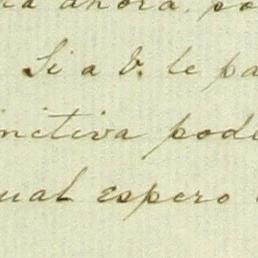 ahora. po
Si a V. le pa
inctiva pode
ual espero